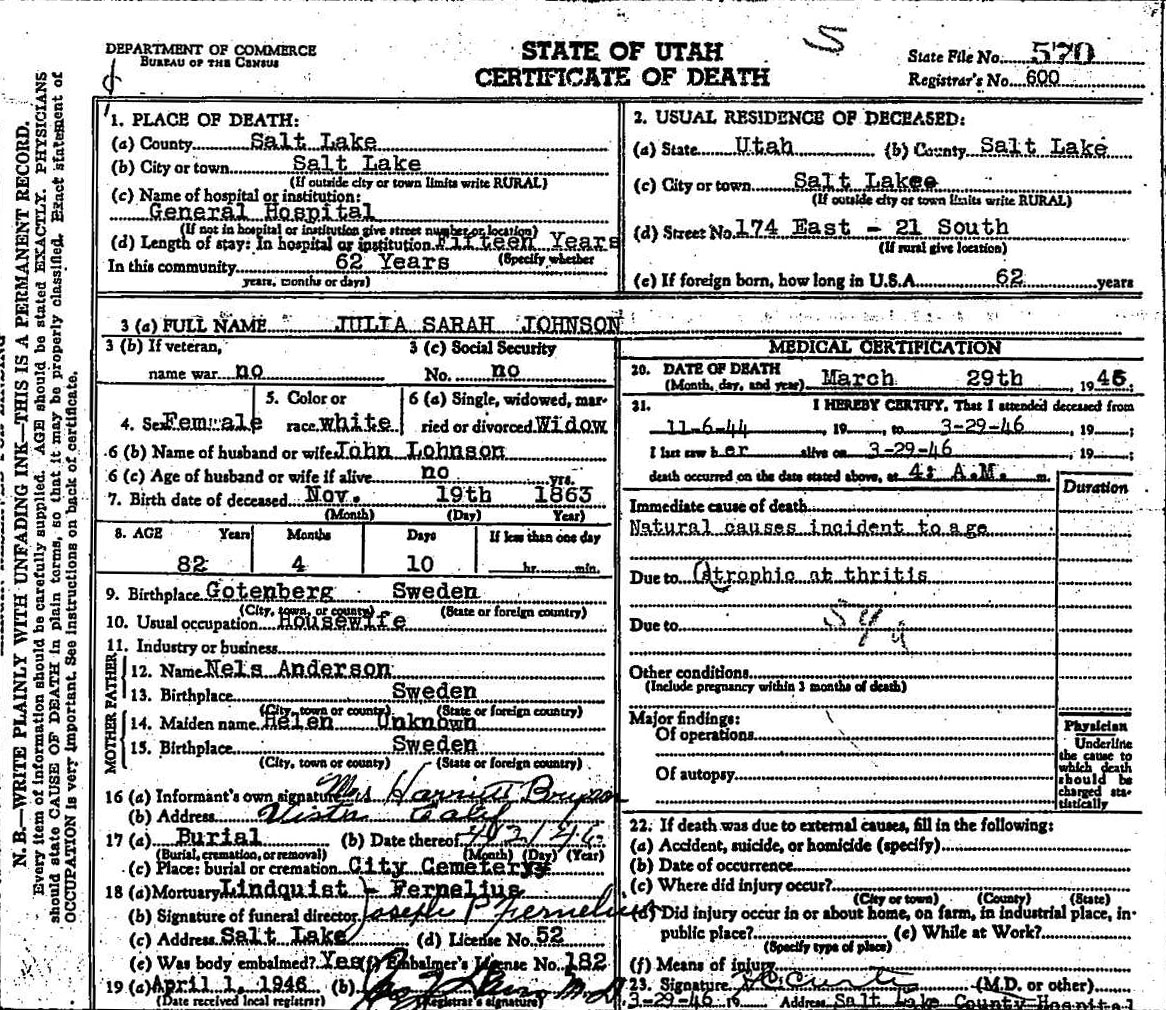 DEPARTMENT OF COMMERCE
BUREAU OF THE CENSUS
STATE OF UTAH
CERTIFICATE OF DEATH
State File No. 570
Registrar's No. 600
N. B.—WRITE PLAINLY WITH UNFADING INK—THIS IS A PERMANENT RECORD.
Every item of information should be carefully supplied. AGE should be stated EXACTLY. PHYSICIANS
should state CAUSE OF DEATH in plain terms, so that it may be properly classified. Exact statement of
OCCUPATION is very important. See instructions on back of certificate.
1. PLACE OF DEATH:
(a) County Salt Lake
(b) City or town Salt Lake
(If outside city or town limits write RURAL)
(c) Name of hospital or institution:
General Hospital
(If not in hospital or institution give street number or location)
(d) Length of stay: In hospital or institution Fifteen Years
(Specify whether
In this community 62 Years
years, months or days)
2. USUAL RESIDENCE OF DECEASED:
(a) State Utah (b) County Salt Lake
(c) City or town Salt Lakee
(If outside city or town limits write RURAL)
(d) Street No. 174 East - 21 South
(If rural give location)
(e) If foreign born, how long in U.S.A. 62 years
3 (a) FULL NAME JULIA SARAH JOHNSON
3 (b) If veteran, 3 (c) Social Security
name war no No. no
4. Sex Female 5. Color or race white 6 (a) Single, widowed, married or divorced Widow
6 (b) Name of husband or wife John Lohnson
6 (c) Age of husband or wife if alive no yrs.
7. Birth date of deceased Nov. 19th 1863
(Month) (Day) Year)
8. AGE Years Months Days If less than one day
82 4 10 hr. min.
9. Birthplace Gotenberg Sweden
(City, town, or county) (State or foreign country)
10. Usual occupation Housewife
11. Industry or business
FATHER
12. Name Nels Anderson
13. Birthplace Sweden
(City, town or county) (State or foreign country)
MOTHER
14. Maiden name Helen Unknown
15. Birthplace Sweden
(City, town or county) (State or foreign country)
16 (a) Informant's own signature Mrs Harriett
(b) Address Calif
17 (a) Burial (b) Date thereof
(Burial, cremation, or removal) (Month) (Day) (Year)
(c) Place: burial or cremation City Cemetery
18 (a) Mortuary Lindquist - Fernelius
(b) Signature of funeral director Joseph P Fernelius
(c) Address Salt Lake (d) License No. 52
(e) Was body embalmed? Yes (f) Embalmer's License No. 182
19 (a) April 1, 1946 (b)
(Date received local registrar) (Registrar's signature)
MEDICAL CERTIFICATION
20. DATE OF DEATH
(Month, day, and year) March 29th, 1946.
21. I HEREBY CERTIFY, That I attended deceased from
11-6-44, 19 , to 3-29-46, 19 ;
I last saw her alive on 3-29-46, 19 ;
death occurred on the date stated above, at 4: A.M. m.
Duration
Immediate cause of death
Natural causes incident to age
Due to Atrophic at thritis
Due to
Other conditions
(Include pregnancy within 3 months of death)
Major findings:
Of operations
Of autopsy
Physician
Underline
the cause to
which death
should be
charged sta-
tistically
22. If death was due to external causes, fill in the following:
(a) Accident, suicide, or homicide (specify)
(b) Date of occurrence
(c) Where did injury occur?
(City or town) (County) (State)
(d) Did injury occur in or about home, on farm, in industrial place, in-
public place? (e) While at Work?
(Specify type of place)
(f) Means of injury
23. Signature (M.D. or other)
3-29-46 Address Salt Lake County Hospital